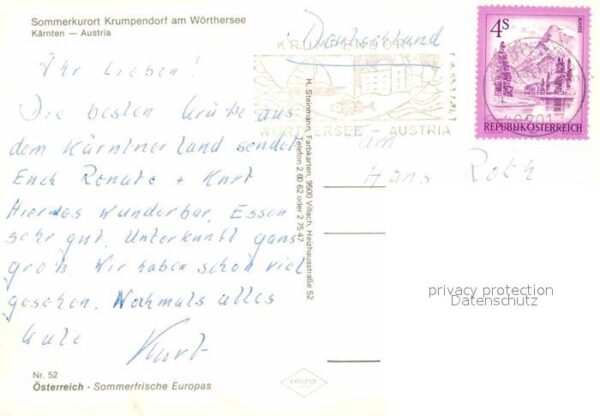 Sommerkurort Krumpendorf am Wörthersee
Kärnten — Austria
Ihr Lieben!
Die besten Grüße aus
dem Kärntnerland sendet
Euch Renate + Kurt
Hier ist es wunderbar, Essen
sehr gut, Unterkunft ganz
groß. Wir haben schon viel
gesehen. Nochmals alles
Gute
Kurt
Nr. 52
Österreich - Sommerfrische Europas
H. Steiermann, Farbkarten, 9500 Villach, Heizhausstraße 52
Telefon 2 60 62 oder 2 75 47
Deutschland
KRUMPENDORF
WÖRTHERSEE – AUSTRIA
4S
REPUBLIK ÖSTERREICH
am
Hans Roth
privacy protection
Datenschutz